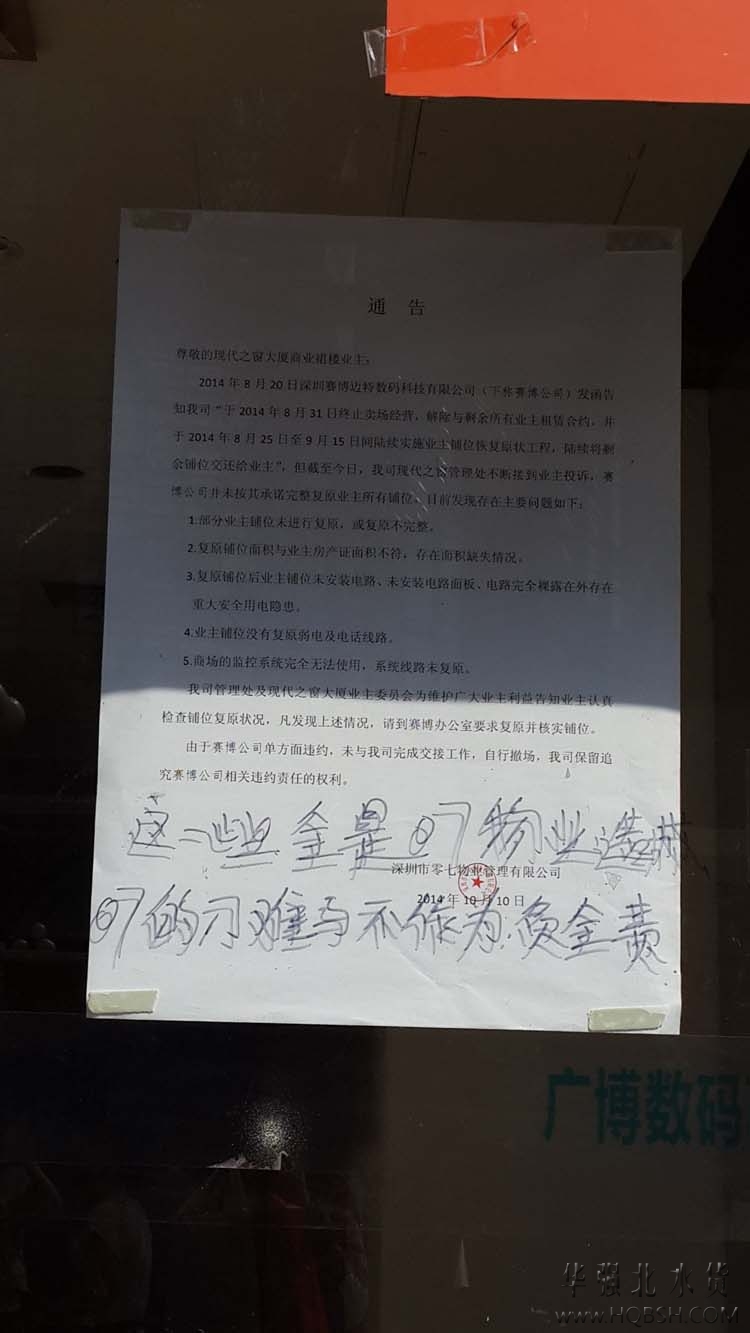 通 告
尊敬的现代之窗大厦商业裙楼业主:
2014年8月20日深圳赛博迈特数码科技有限公司(下称赛博公司)发函告
知我司“于2014年8月31日终止卖场经营，解除与剩余所有业主租赁合约，并
于2014年8月25日至9月15日间陆续实施业主铺位恢复原状工程，陆续将剩
余铺位交还给业主”，但截至今日，我司现代之窗管理处不断接到业主投诉，赛
博公司并未按其承诺完整复原业主所有铺位，目前发现存在主要问题如下:
1.部分业主铺位未进行复原，或复原不完整。
2.复原铺位面积与业主房产证面积不符，存在面积缺失情况。
3.复原铺位后业主铺位未安装电路、未安装电路面板、电路完全裸露在外存在
重大安全用电隐患。
4.业主铺位没有复原弱电及电话线路。
5.商场的监控系统完全无法使用，系统线路未复原。
我司管理处及现代之窗大厦业主委员会为维护广大业主利益告知业主认真
检查铺位复原状况，凡发现上述情况，请到赛博办公室要求复原并核实铺位。
由于赛博公司单方面违约，未与我司完成交接工作，自行撤场，我司保留追
究赛博公司相关违约责任的权利。
这一些全是07物业造成
深圳市零七物业管理有限公司
2014年10月10日
07的刁难与不作为.负全责
广博数码
华强北水货
www.HQBSH.com